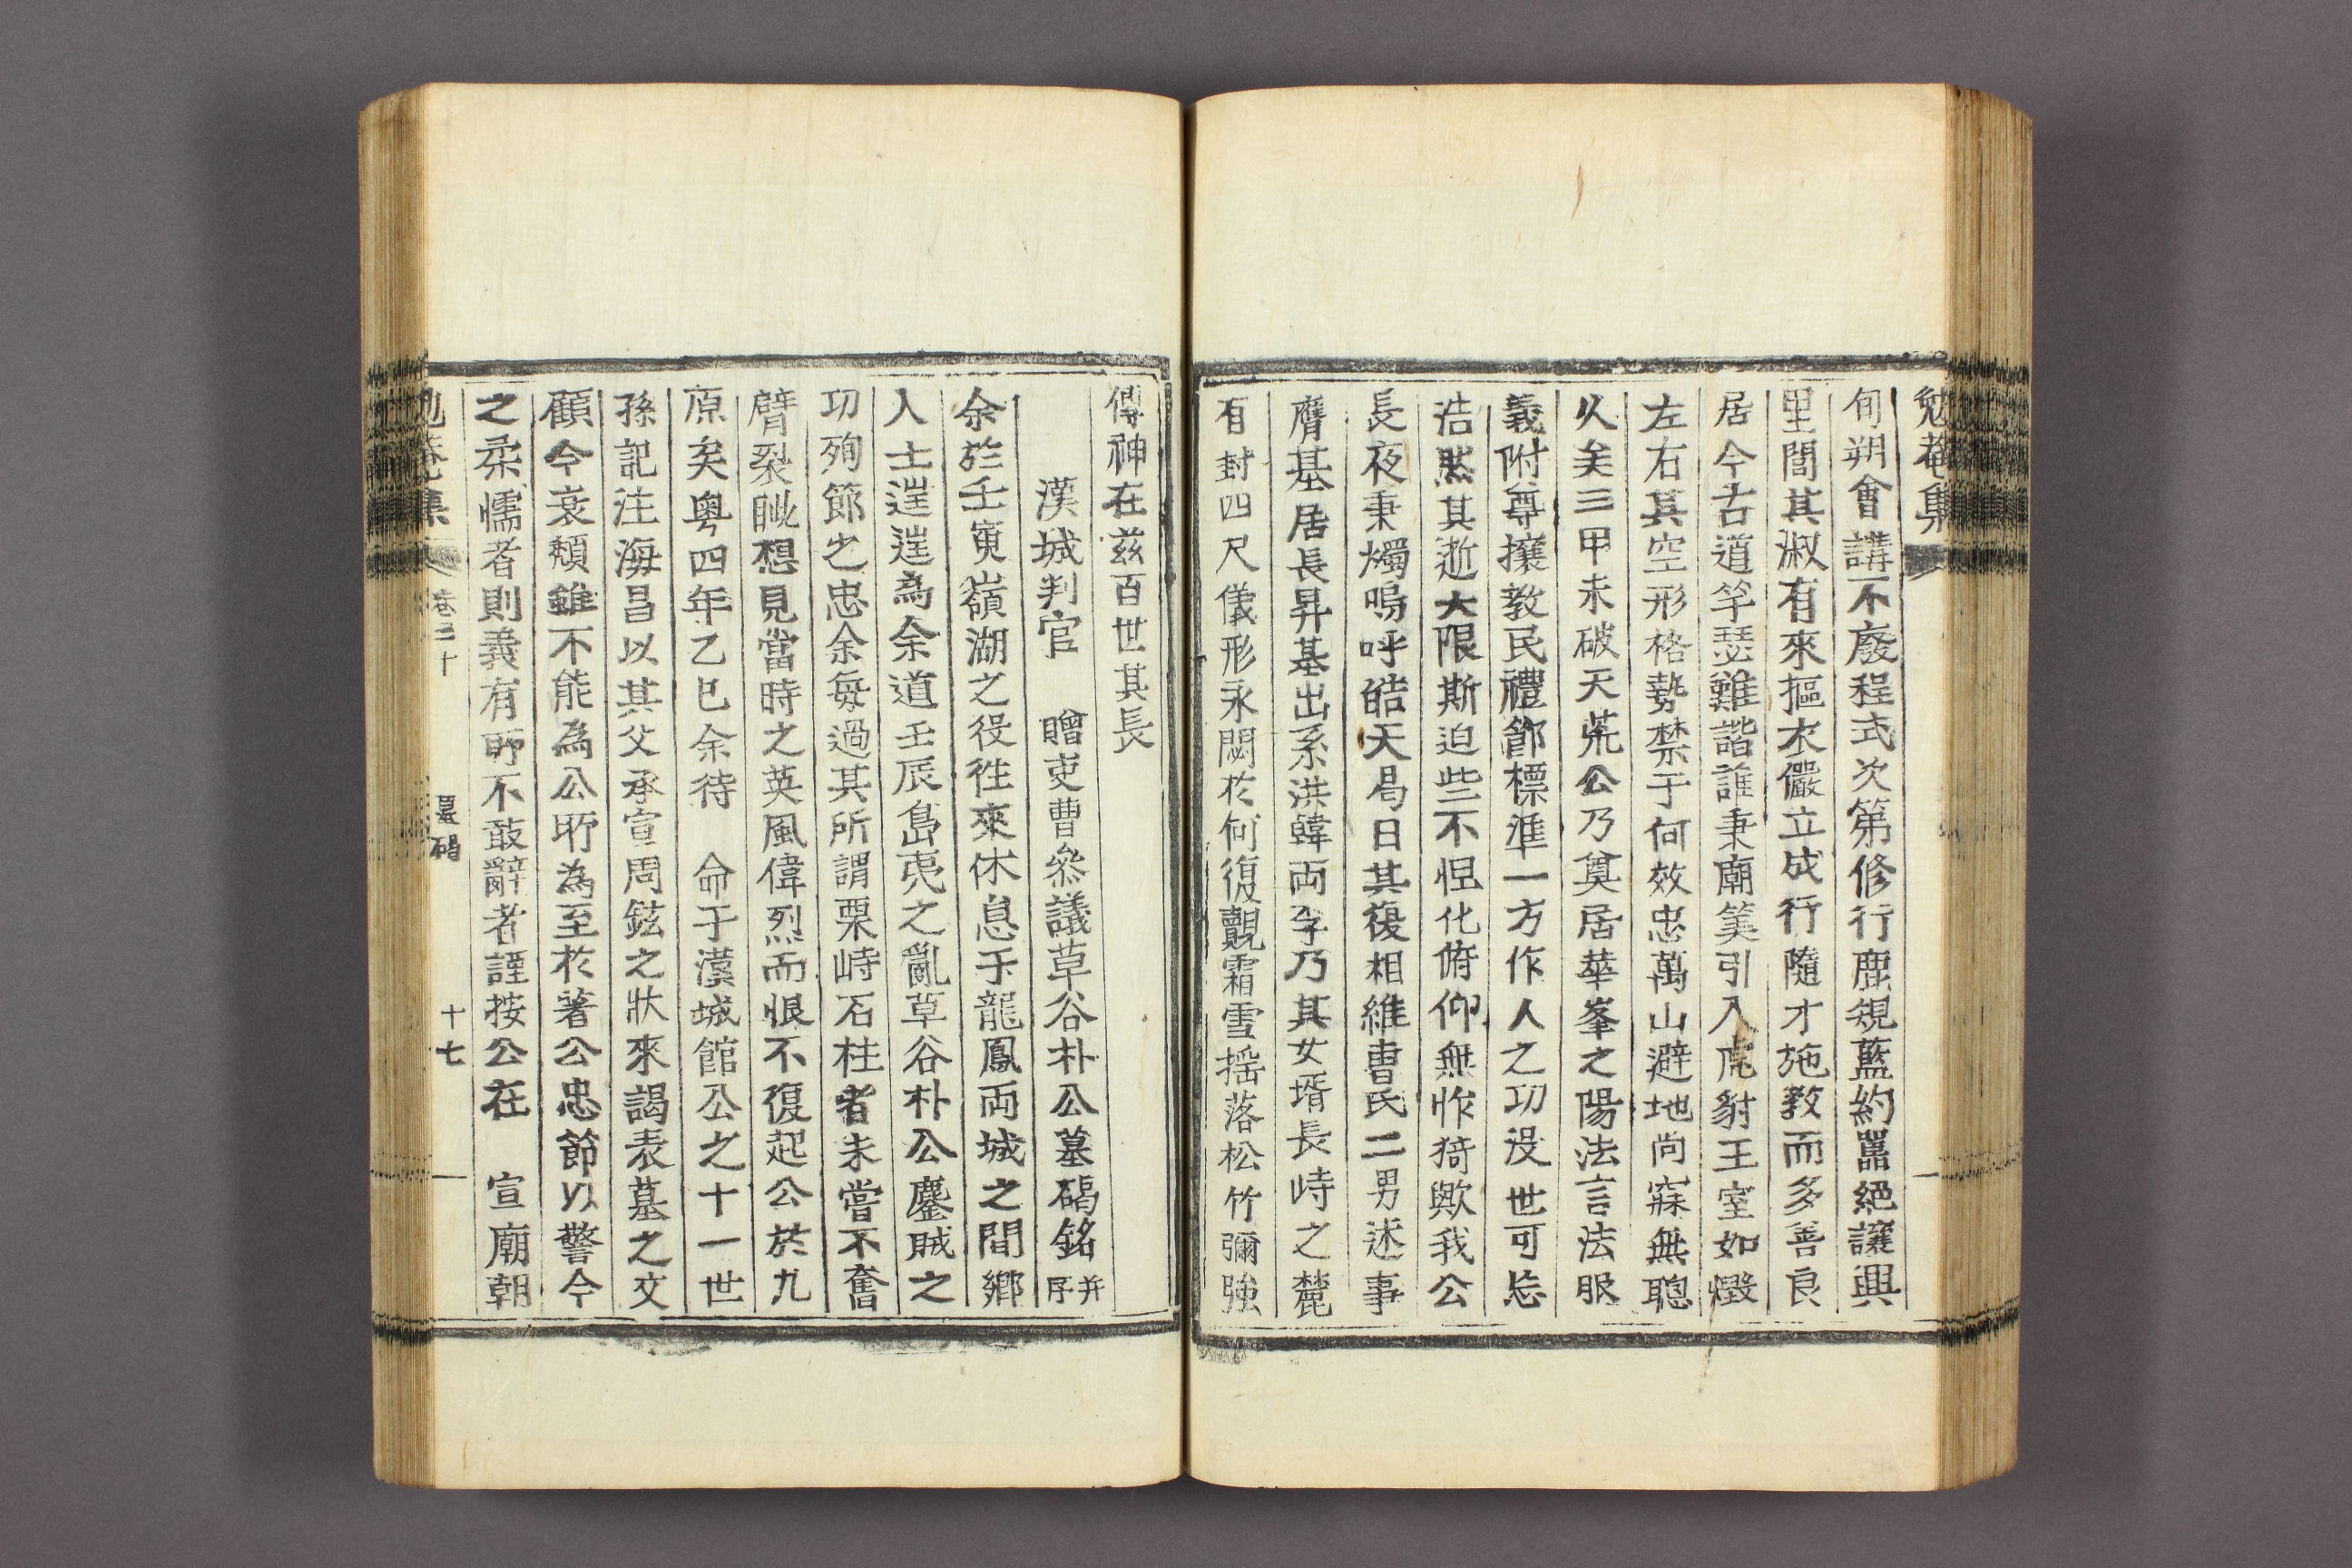 勉菴集
旬朔會講不廢程式次第修行鹿規藍約嚚絕讓興
里閭其淑有來摳衣儼立成行隨才施教而多善良
居今古道竽瑟難諧誰秉廟筭引入虎豺王室如燬
左右其空形格勢禁于何效忠萬山避地尚寐無聰
久矣三甲未破天荒公乃奠居華峯之陽法言法服
義附尊攘教民禮節標準一方作人之功沒世可忘
浩然其逝大限斯迫些不怛化俯仰無怍猗歟我公
長夜秉燭嗚呼皓天曷日其復相維曺氏二男述事
膺基居長昇基出系洪韓両李乃其女壻長峙之麓
有封四尺儀形永閟於何復覿霜雪搖落松竹彌強
傳神在玆百世其長
漢城判官　贈吏曹叅議草谷朴公墓碣銘并序
余於壬寅嶺湖之役徃來休息于龍鳳両城之間鄉
人士遑遑為余道壬辰島夷之亂草谷朴公鏖賊之
功殉節之忠余每過其所謂栗峙石柱者未嘗不奮
臂裂眦想見當時之英風偉烈而恨不復起公於九
原矣粤四年乙巳余待　命于漢城館公之十一世
孫記注海昌以其父承宣周鉉之狀來謁表墓之文
顧今衰頹雖不能為公所為至於著公忠節以警今
之柔懦者則義有所不敢辭者謹按公在　宣廟朝
勉菴集　卷三十　墓碣　十七